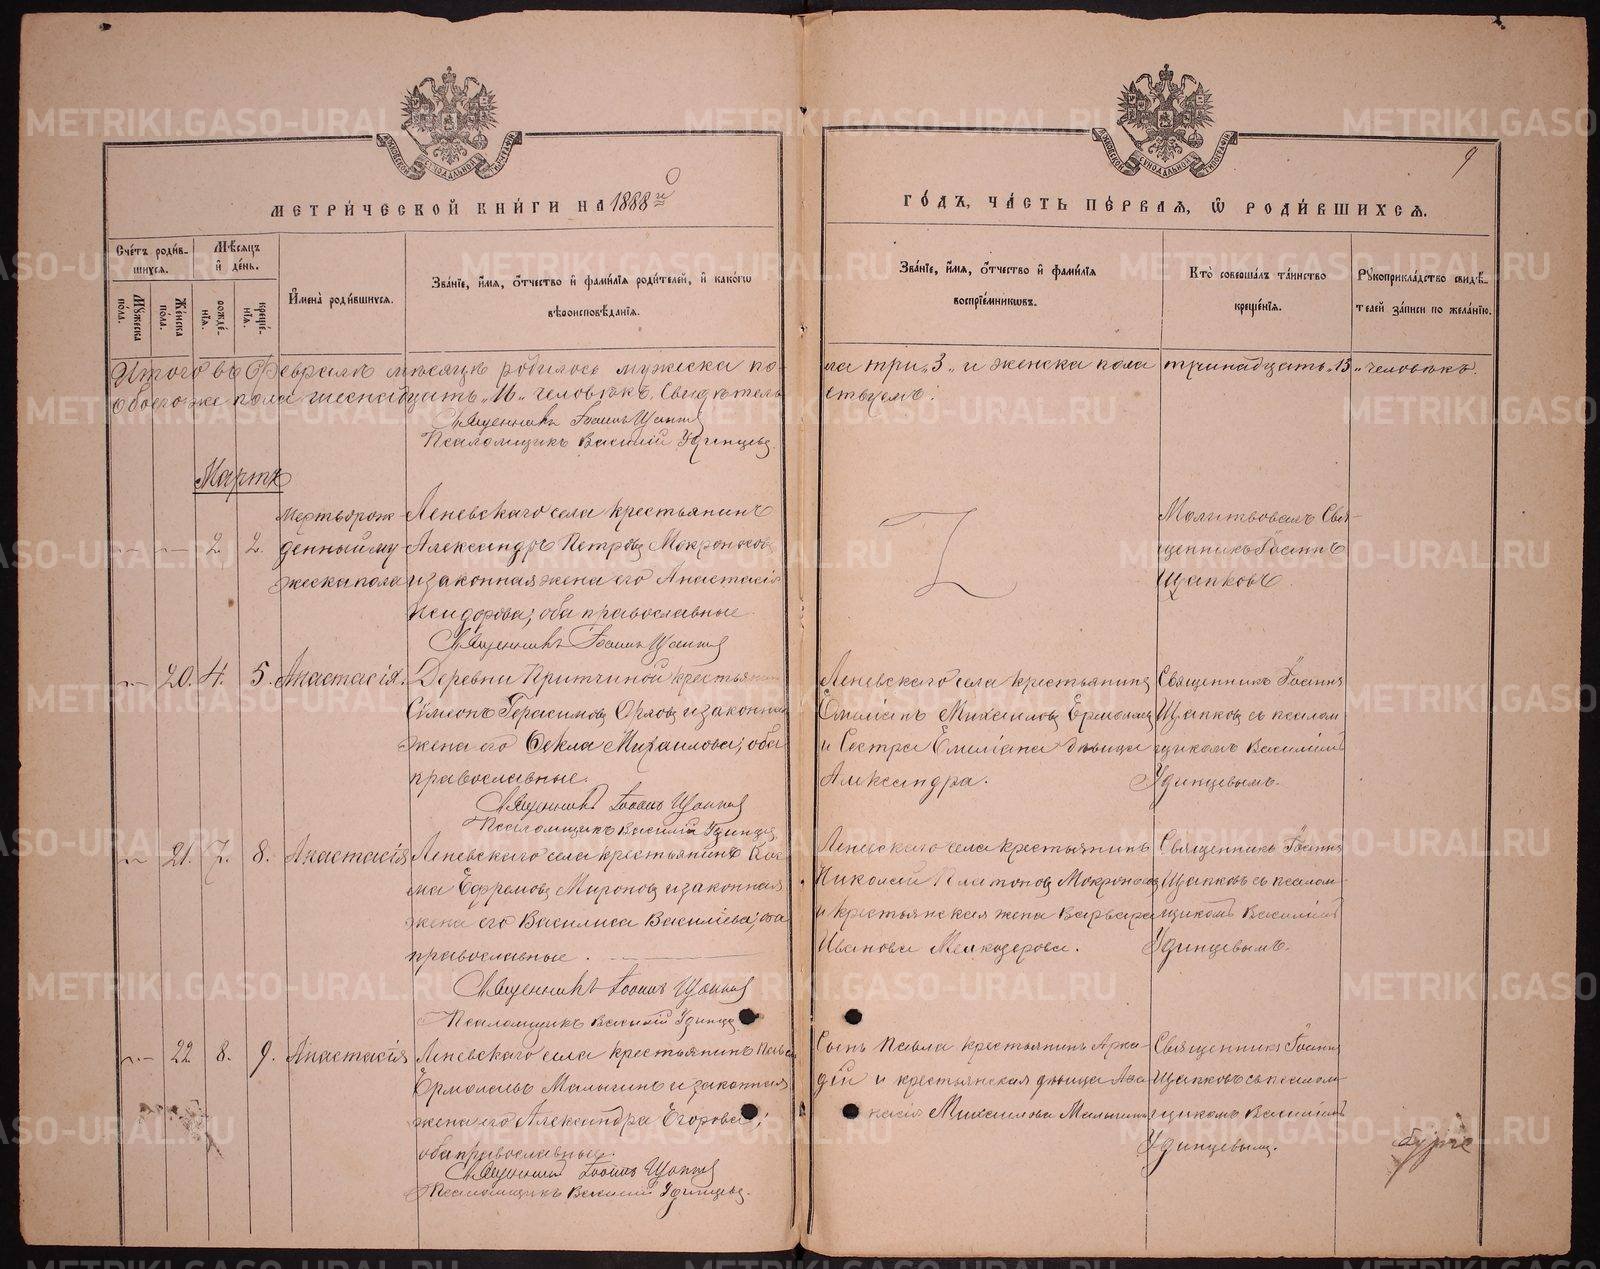 МЕТРИ́ЧЕСКОЙ КНИ́ГИ НА 1888й
ГО́ДЪ, ЧА́СТЬ ПЕ́РВАЯ, Ѡ РОДИ́ВШИХСЯ.
9
Сче́тъ роди́в-
шихся.
Мѣ́сяцъ
и҆ де́нь.
Мꙋ́жеска
по́ла.
Же́нска
по́ла.
рожде́-
нїя.
креще́-
нїя.
И҆мена̀ роди́вшихся.
Зва́нїе, и҆́мя, ѻ҆́тчество и҆ фами́лїя роди́телей, и҆ како́гѡ
вѣроисповѣ́данїя.
Зва́нїе, и҆́мя, ѻ҆́тчество и҆ фами́лїя
воспрїе́мникѡвъ.
Кто̀ соверша́лъ та́инство
креще́нїя.
Рꙋкоприкла́дство свидѣ́-
телей за́писи по жела́нїю.
Итого въ Февралѣ мѣсяцѣ родилось мужеска по-
ла три „3„ и женска пола тринадцать „13„ человѣкъ.
обоего же пола шестнадцать „16„ человѣкъ. Свидѣтель-
ствуемъ.
Священникъ Іоаннъ Щапковъ
Псаломщикъ Василій Удинцевъ.
Мартъ
2. 2.
Мертворож-
денный му-
жеска пола
Леневскаго села крестьянинъ
Александръ Петровъ Мокроносовъ
и законная жена его Анастасія
Исидорова; оба православные.
Священникъ Іоаннъ Щапковъ
Молитвовалъ Свя-
щенникъ Іоаннъ
Щапковъ.
20. 4. 5. Анастасія.
Деревни Притчиной крестьянинъ
Сѵмеонъ Герасимовъ Орловъ и законная
жена его Ѳекла Михаилова; оба
православные.
Священникъ Іоаннъ Щапковъ
Псаломщикъ Василій Удинцевъ
Леневскаго села крестьянинъ
Емиліанъ Михаиловъ Ермолаевъ
и Сестра Емиліана дѣвица
Александра.
Священникъ Іоаннъ
Щапковъ съ псалом-
щикомъ Василіемъ
Удинцевымъ.
21. 7. 8. Анастасія
Леневскаго села крестьянинъ Кос-
ма Ефремовъ Мироновъ и законная
жена его Василиса Василіева; оба
православные.
Священникъ Іоаннъ Щапковъ
Псаломщикъ Василій Удинцевъ
Леневскаго села крестьянинъ
Николай Платоновъ Мокроносовъ
и крестьянская жена Варвара
Иванова Мелкозерова.
Священникъ Іоаннъ
Щапковъ съ псалом-
щикомъ Василіемъ
Удинцевымъ.
22 8. 9. Анастасія
Леневскаго села крестьянинъ Павелъ
Ермолаевъ Малыгинъ и законная
жена его Александра Егорова;
оба православные.
Священникъ Іоаннъ Щапковъ
Псаломщикъ Василій Удинцевъ.
Сынъ Павла крестьянинъ Арка-
дій и крестьянская дѣвица
Михаилова Малыгина
Священникъ Іоаннъ
Щапковъ съ псалом-
щикомъ Василіемъ
Удинцевымъ.
METRIKI.GASO-URAL.RU